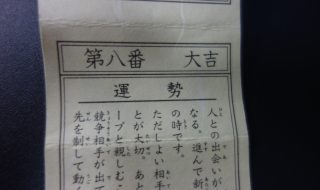 第八番 大吉
運勢
人との出会いが
なる。進んで新
の時です。
ただしよい相手
とが大切。あと
ープと親しむこ
競争相手が出て
先を制して動